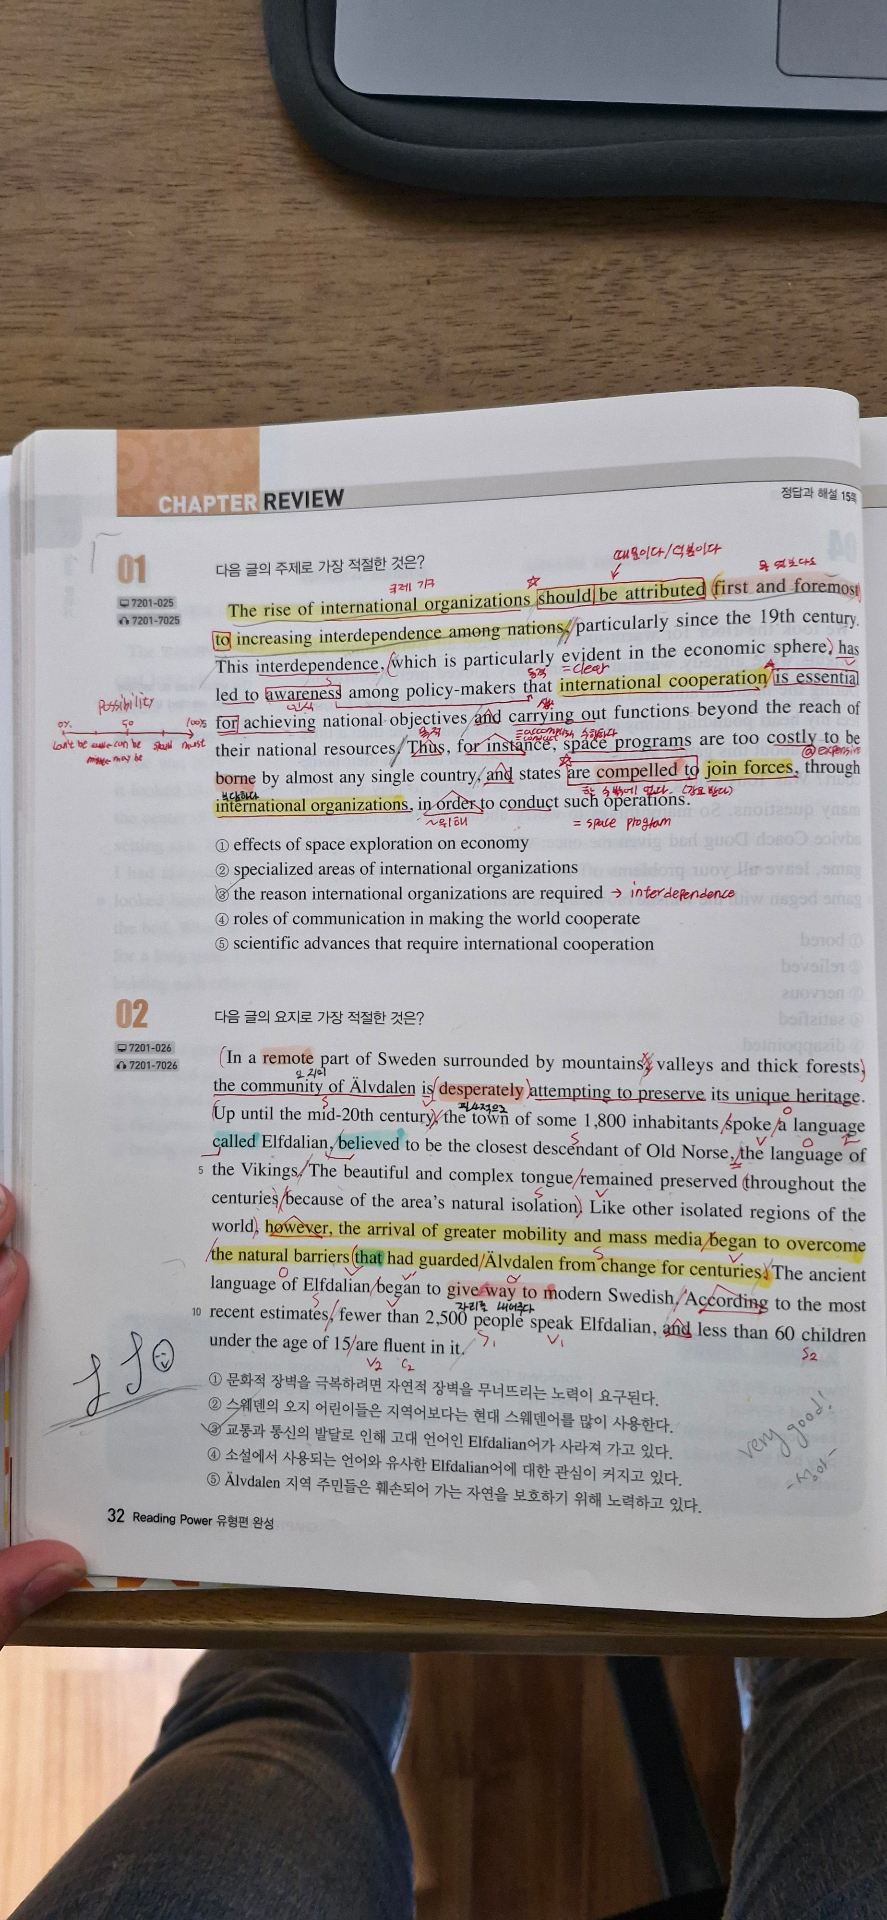 CHAPTER REVIEW
정답과 해설 15쪽
01
다음 글의 주제로 가장 적절한 것은?
때문이다/덕분이다
국제 기구
7201-025
7201-7025
The rise of international organizations should be attributed first and foremost
to increasing interdependence among nations, particularly since the 19th century.
This interdependence, which is particularly evident in the economic sphere, has
= clear
led to awareness among policy-makers that international cooperation is essential
인식
for achieving national objectives and carrying out functions beyond the reach of
Possibility
0% 50 100%
can't be can be should must
may be
their national resources. Thus, for instance, space programs are too costly to be
expensive
borne by almost any single country, and states are compelled to join forces, through
부담하다
할 수밖에 없다. (강요 받다)
international organizations, in order to conduct such operations.
~위해
= space program
① effects of space exploration on economy
② specialized areas of international organizations
③ the reason international organizations are required → interdependence
④ roles of communication in making the world cooperate
⑤ scientific advances that require international cooperation
02
다음 글의 요지로 가장 적절한 것은?
7201-026
7201-7026
In a remote part of Sweden surrounded by mountains, valleys and thick forests,
오지의
the community of Älvdalen is desperately attempting to preserve its unique heritage.
필사적으로
Up until the mid-20th century, the town of some 1,800 inhabitants spoke a language
called Elfdalian, believed to be the closest descendant of Old Norse, the language of
5 the Vikings. The beautiful and complex tongue remained preserved throughout the
centuries because of the area's natural isolation. Like other isolated regions of the
world, however, the arrival of greater mobility and mass media began to overcome
the natural barriers that had guarded Älvdalen from change for centuries. The ancient
language of Elfdalian began to give way to modern Swedish. According to the most
자리를 내어주다
10 recent estimates, fewer than 2,500 people speak Elfdalian, and less than 60 children
S₁ V₁ S₂
under the age of 15 are fluent in it.
V₂ C₂
① 문화적 장벽을 극복하려면 자연적 장벽을 무너뜨리는 노력이 요구된다.
② 스웨덴의 오지 어린이들은 지역어보다는 현대 스웨덴어를 많이 사용한다.
③ 교통과 통신의 발달로 인해 고대 언어인 Elfdalian어가 사라져 가고 있다.
④ 소설에서 사용되는 언어와 유사한 Elfdalian어에 대한 관심이 커지고 있다.
⑤ Älvdalen 지역 주민들은 훼손되어 가는 자연을 보호하기 위해 노력하고 있다.
very good!
32 Reading Power 유형편 완성